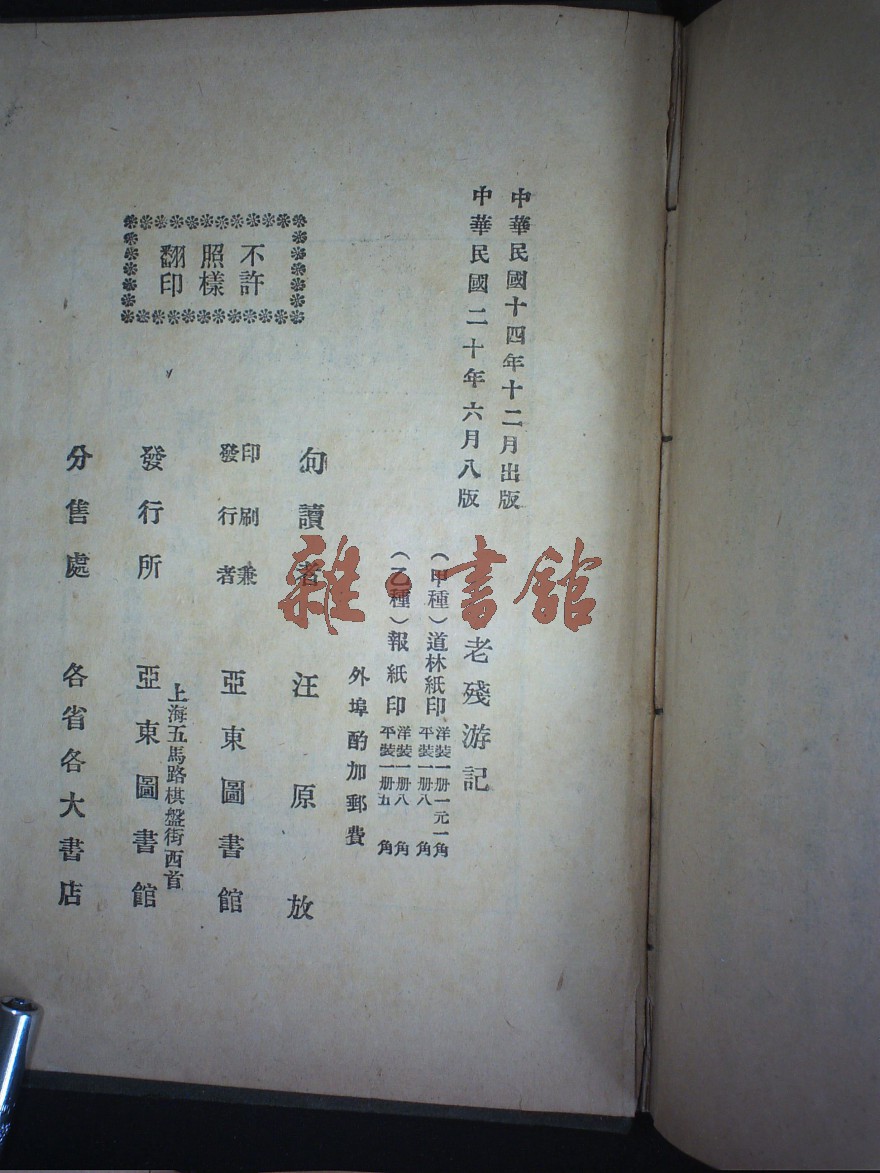 中華民國十四年十二月出版
中華民國二十年六月八版
老殘游記
(甲種)道林紙印
洋裝一册一元一角
平裝一册八角
(乙種)報紙印
洋裝一册八角
平裝一册五角
外埠酌加郵費
句讀者 汪原放
印刷兼
發行者
亞東圖書館
上海五馬路棋盤街西首
發行所 亞東圖書館
分售處 各省各大書店
不許
照樣
翻印
雜·書館